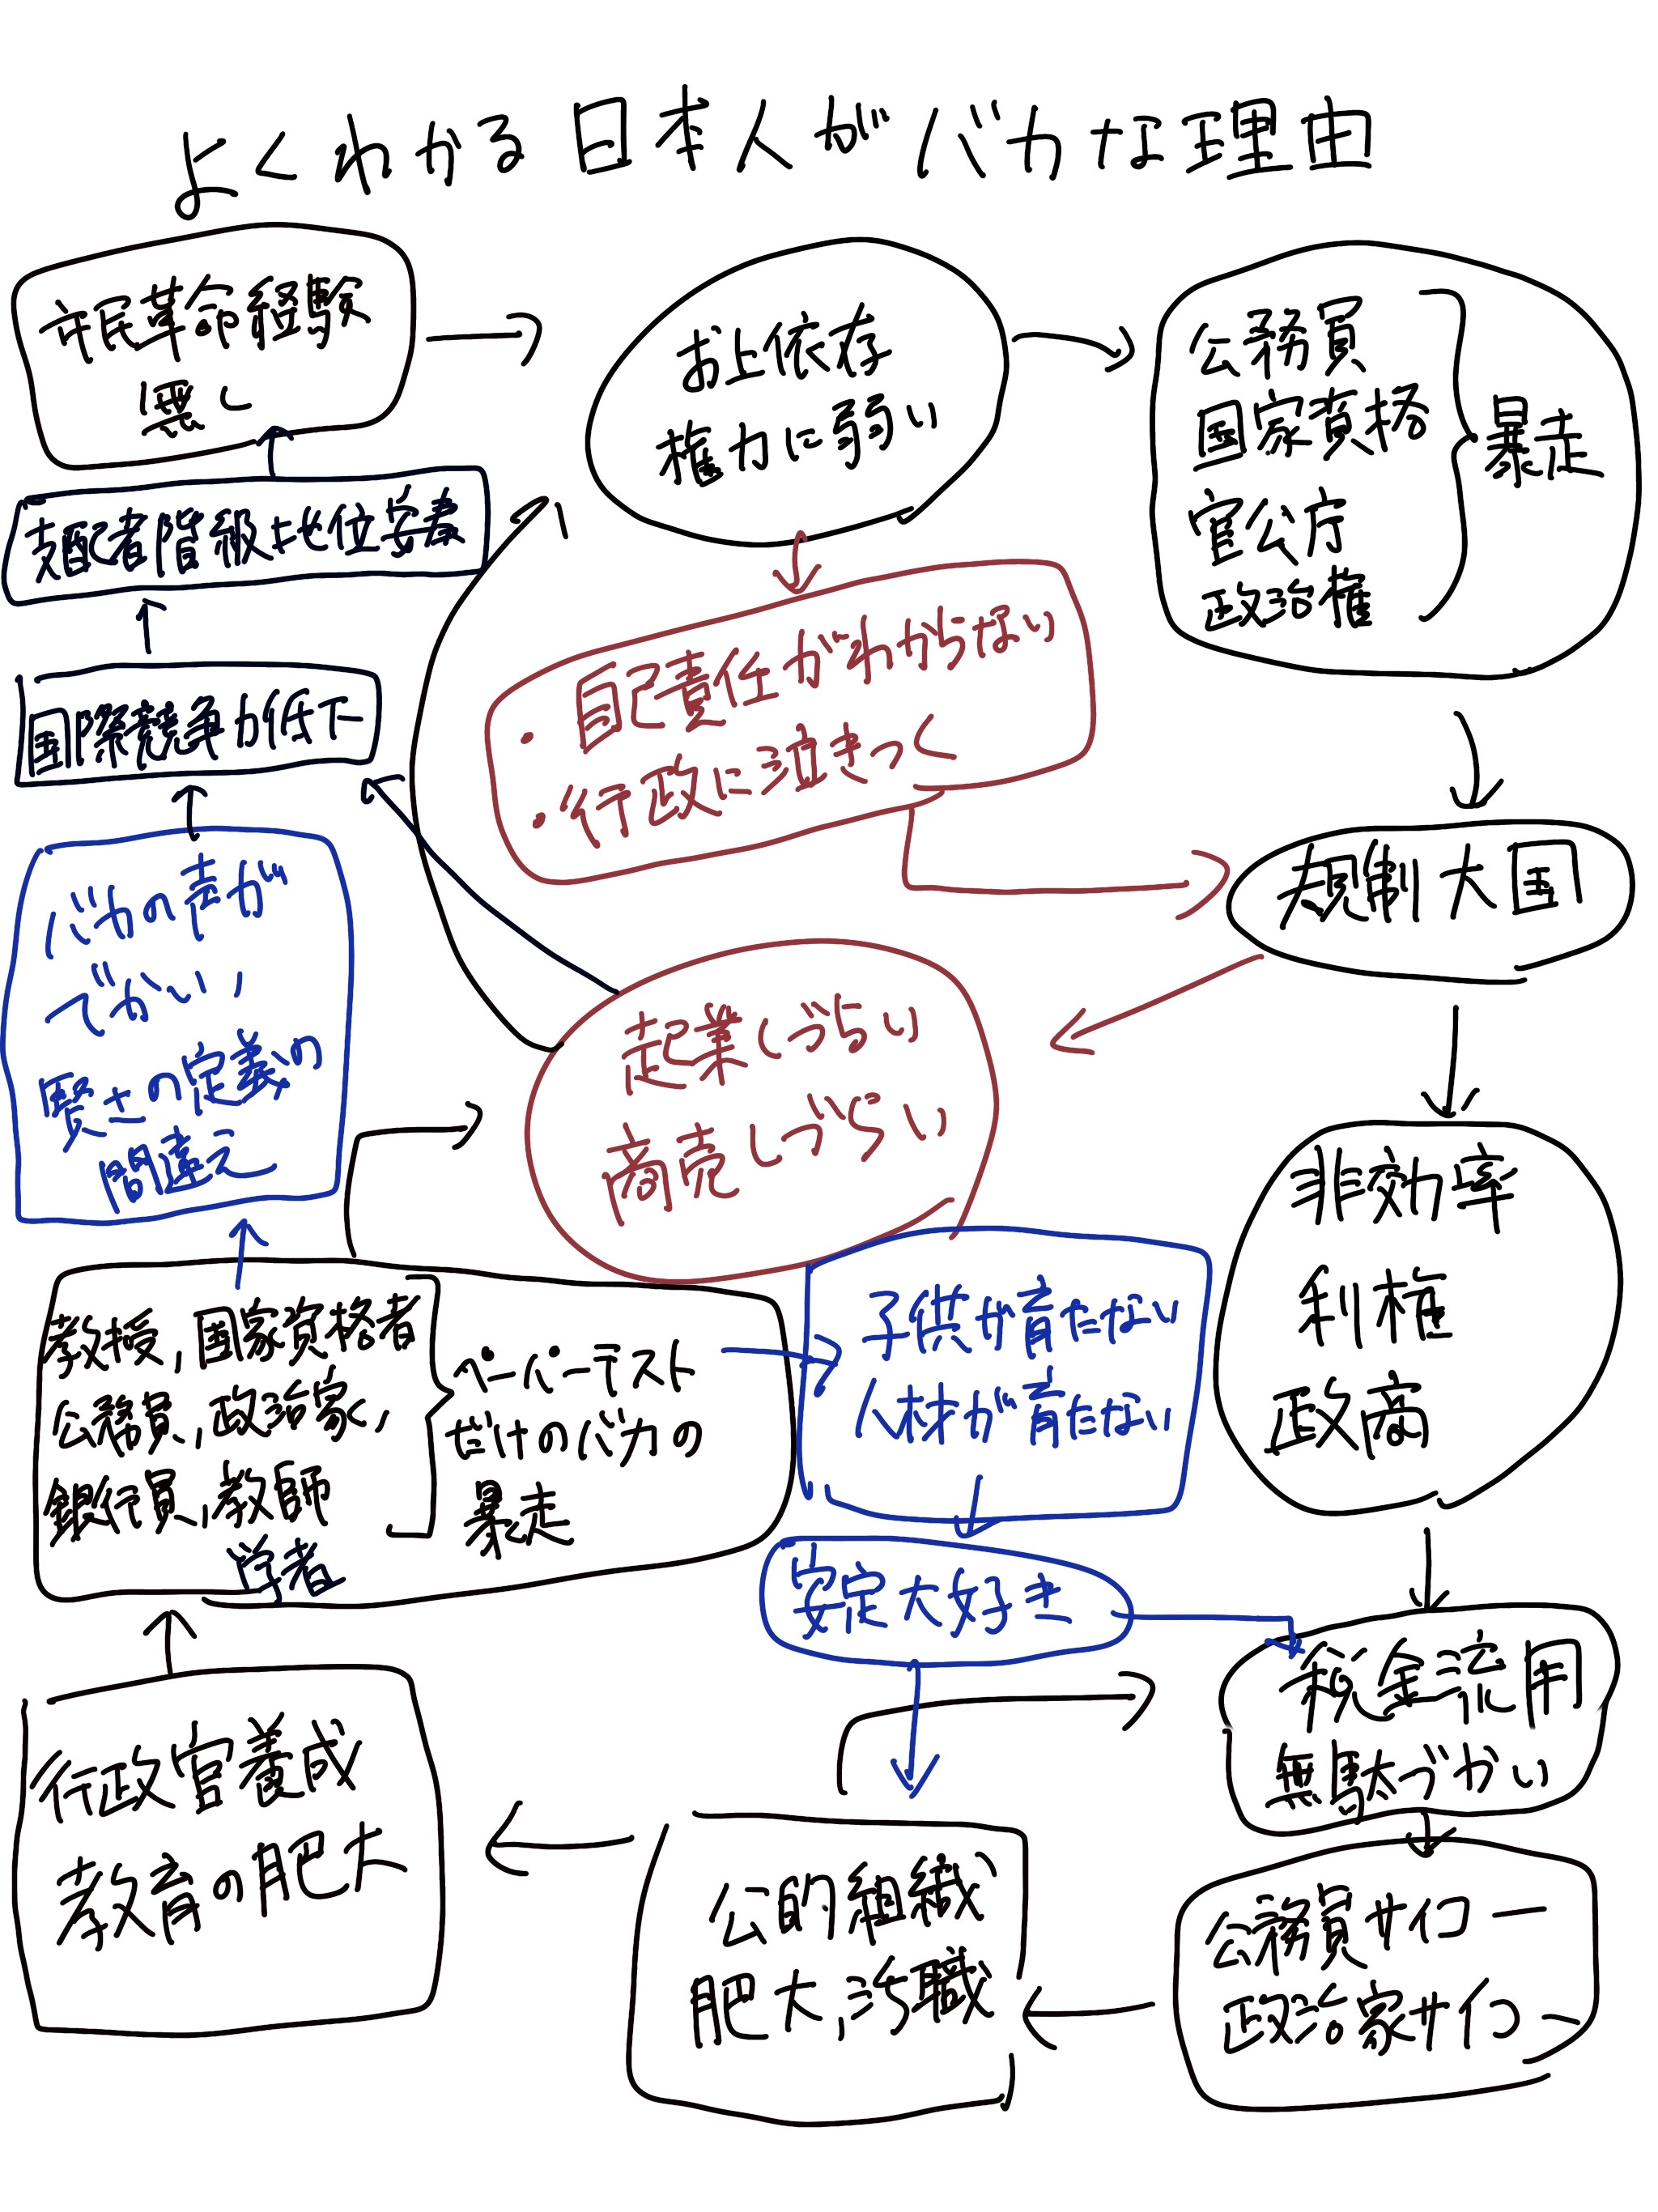 よくわかる日本人がバカな理由
市民革命経験
無し
お上依存
権力に弱い
公務員
国家資格
官公庁
政治権
暴走
支配者階級地位安泰
・自己責任がわからない
・行政に泣きつく
国際競争力低下
規制大国
バカの声が
でかい
賢さの定義の
間違え
起業しづらい
商売しづらい
非効率
利権
政商
教授,国家資格者
公務員,政治家,
銀行員,教師
学者
ペーパーテスト
だけのバカの
暴走
子供が育たない
人材が育たない
安定大好き
税金流用
無駄づかい
行政官養成
教育の肥大
公的組織
肥大,汚職
公務員サイコー
政治家サイコー